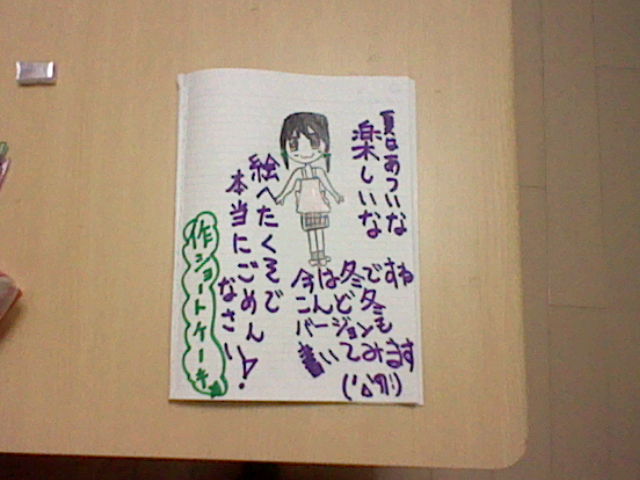 夏はあついな
楽しいな
今は冬ですね
こんど冬
バージョンも
書いてみます
(՚Δ՚)ﾘ)
絵へたくそで
本当にごめん
なさい!
作ショートケーキ